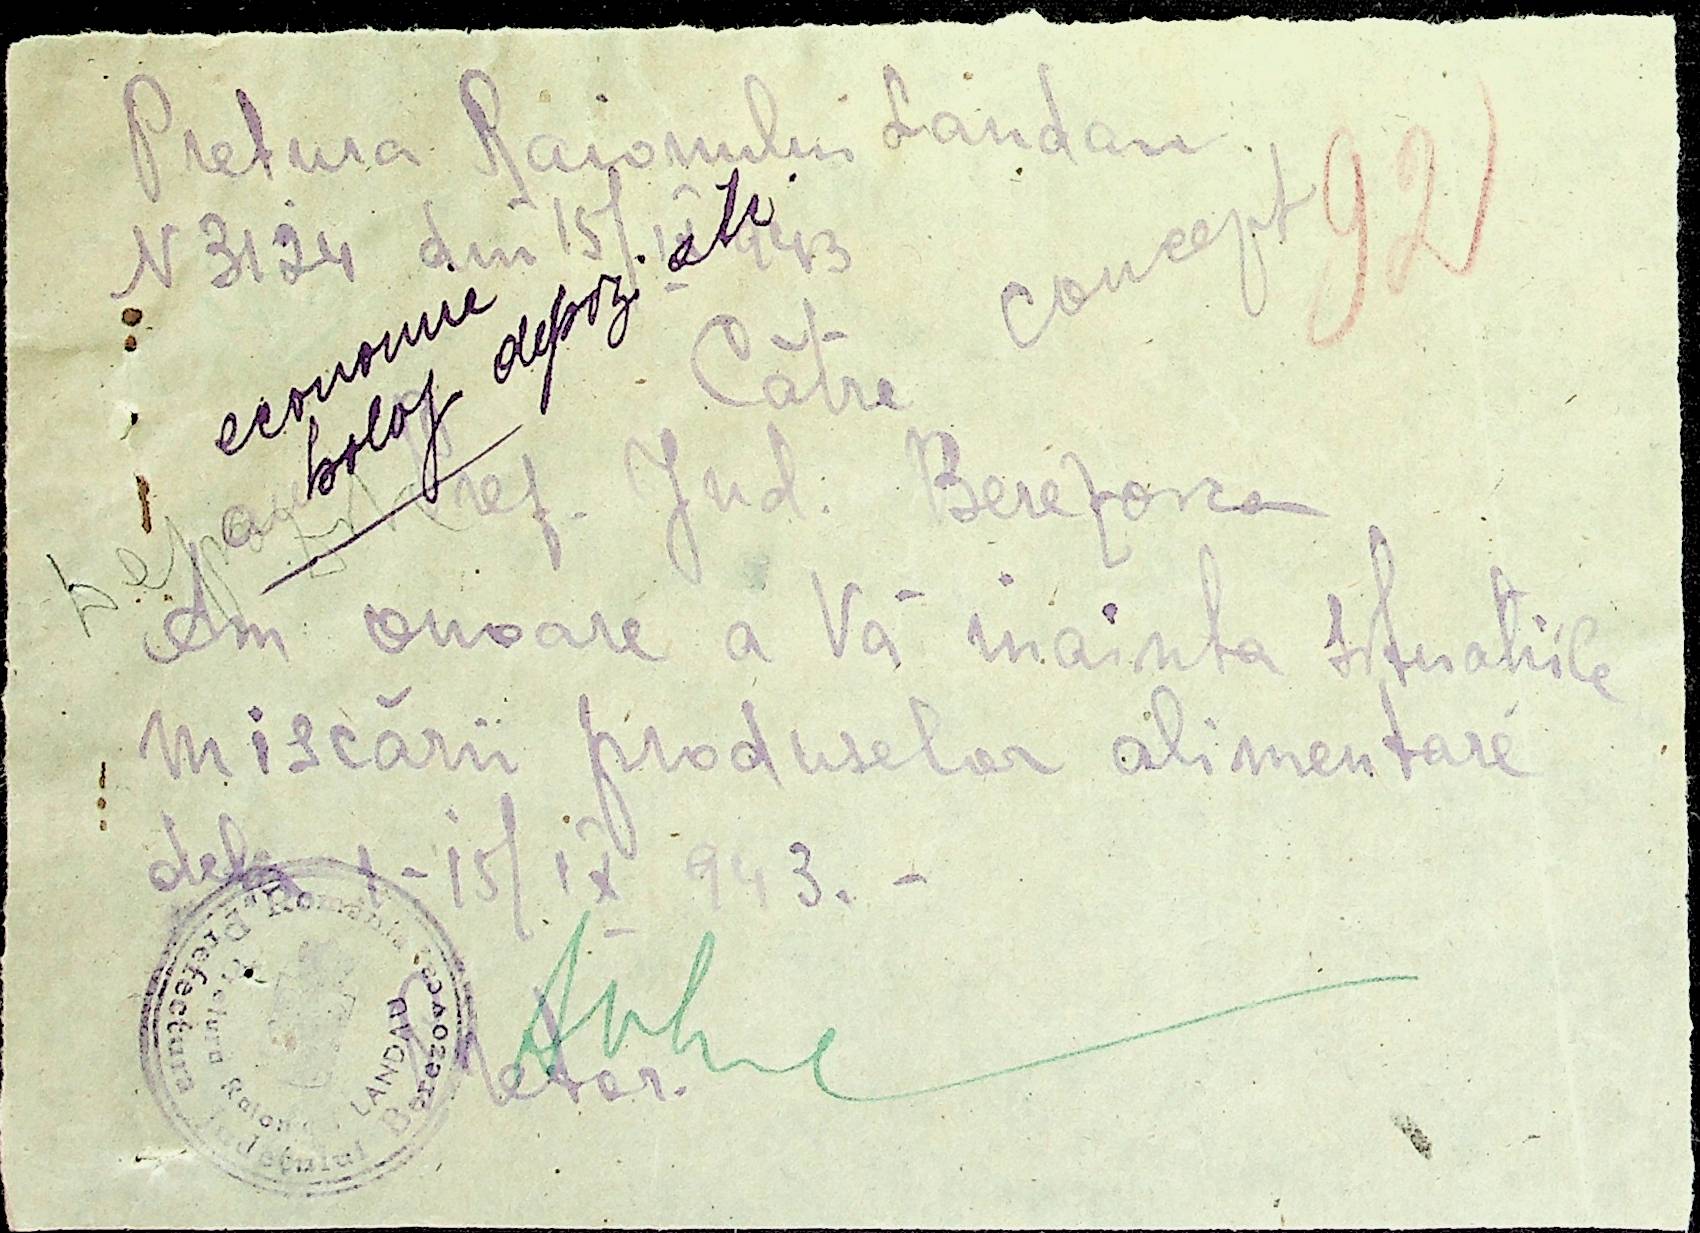 Pretura Raionului Landau
N 3124 din 15/IX 943
concept
92
economie
boloj depoz. alt
Către
Pref. Jud. Berezovca
Am onoare a Vă inainta situatiile
miscării produselor alimentare
dela 1-15/IX 943. -
Pretor.
România
Prefectura Județului Berezovca
Pretura Raion LANDAU